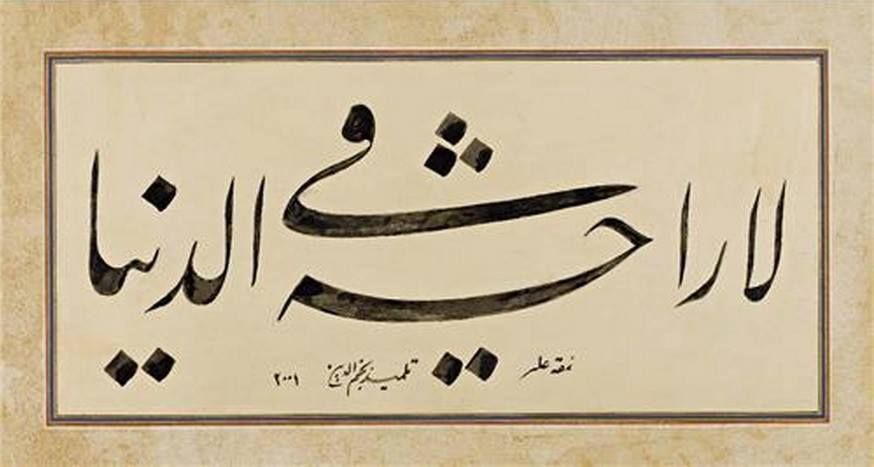 لا راحة في الدنيا
نمقه علي تلميذ نجم الدين ٢٠٠١